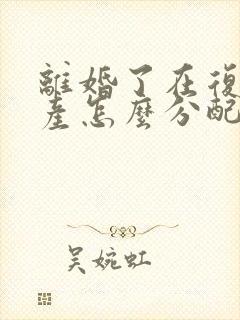 離婚了在復
產怎麼分配
吳婉虹